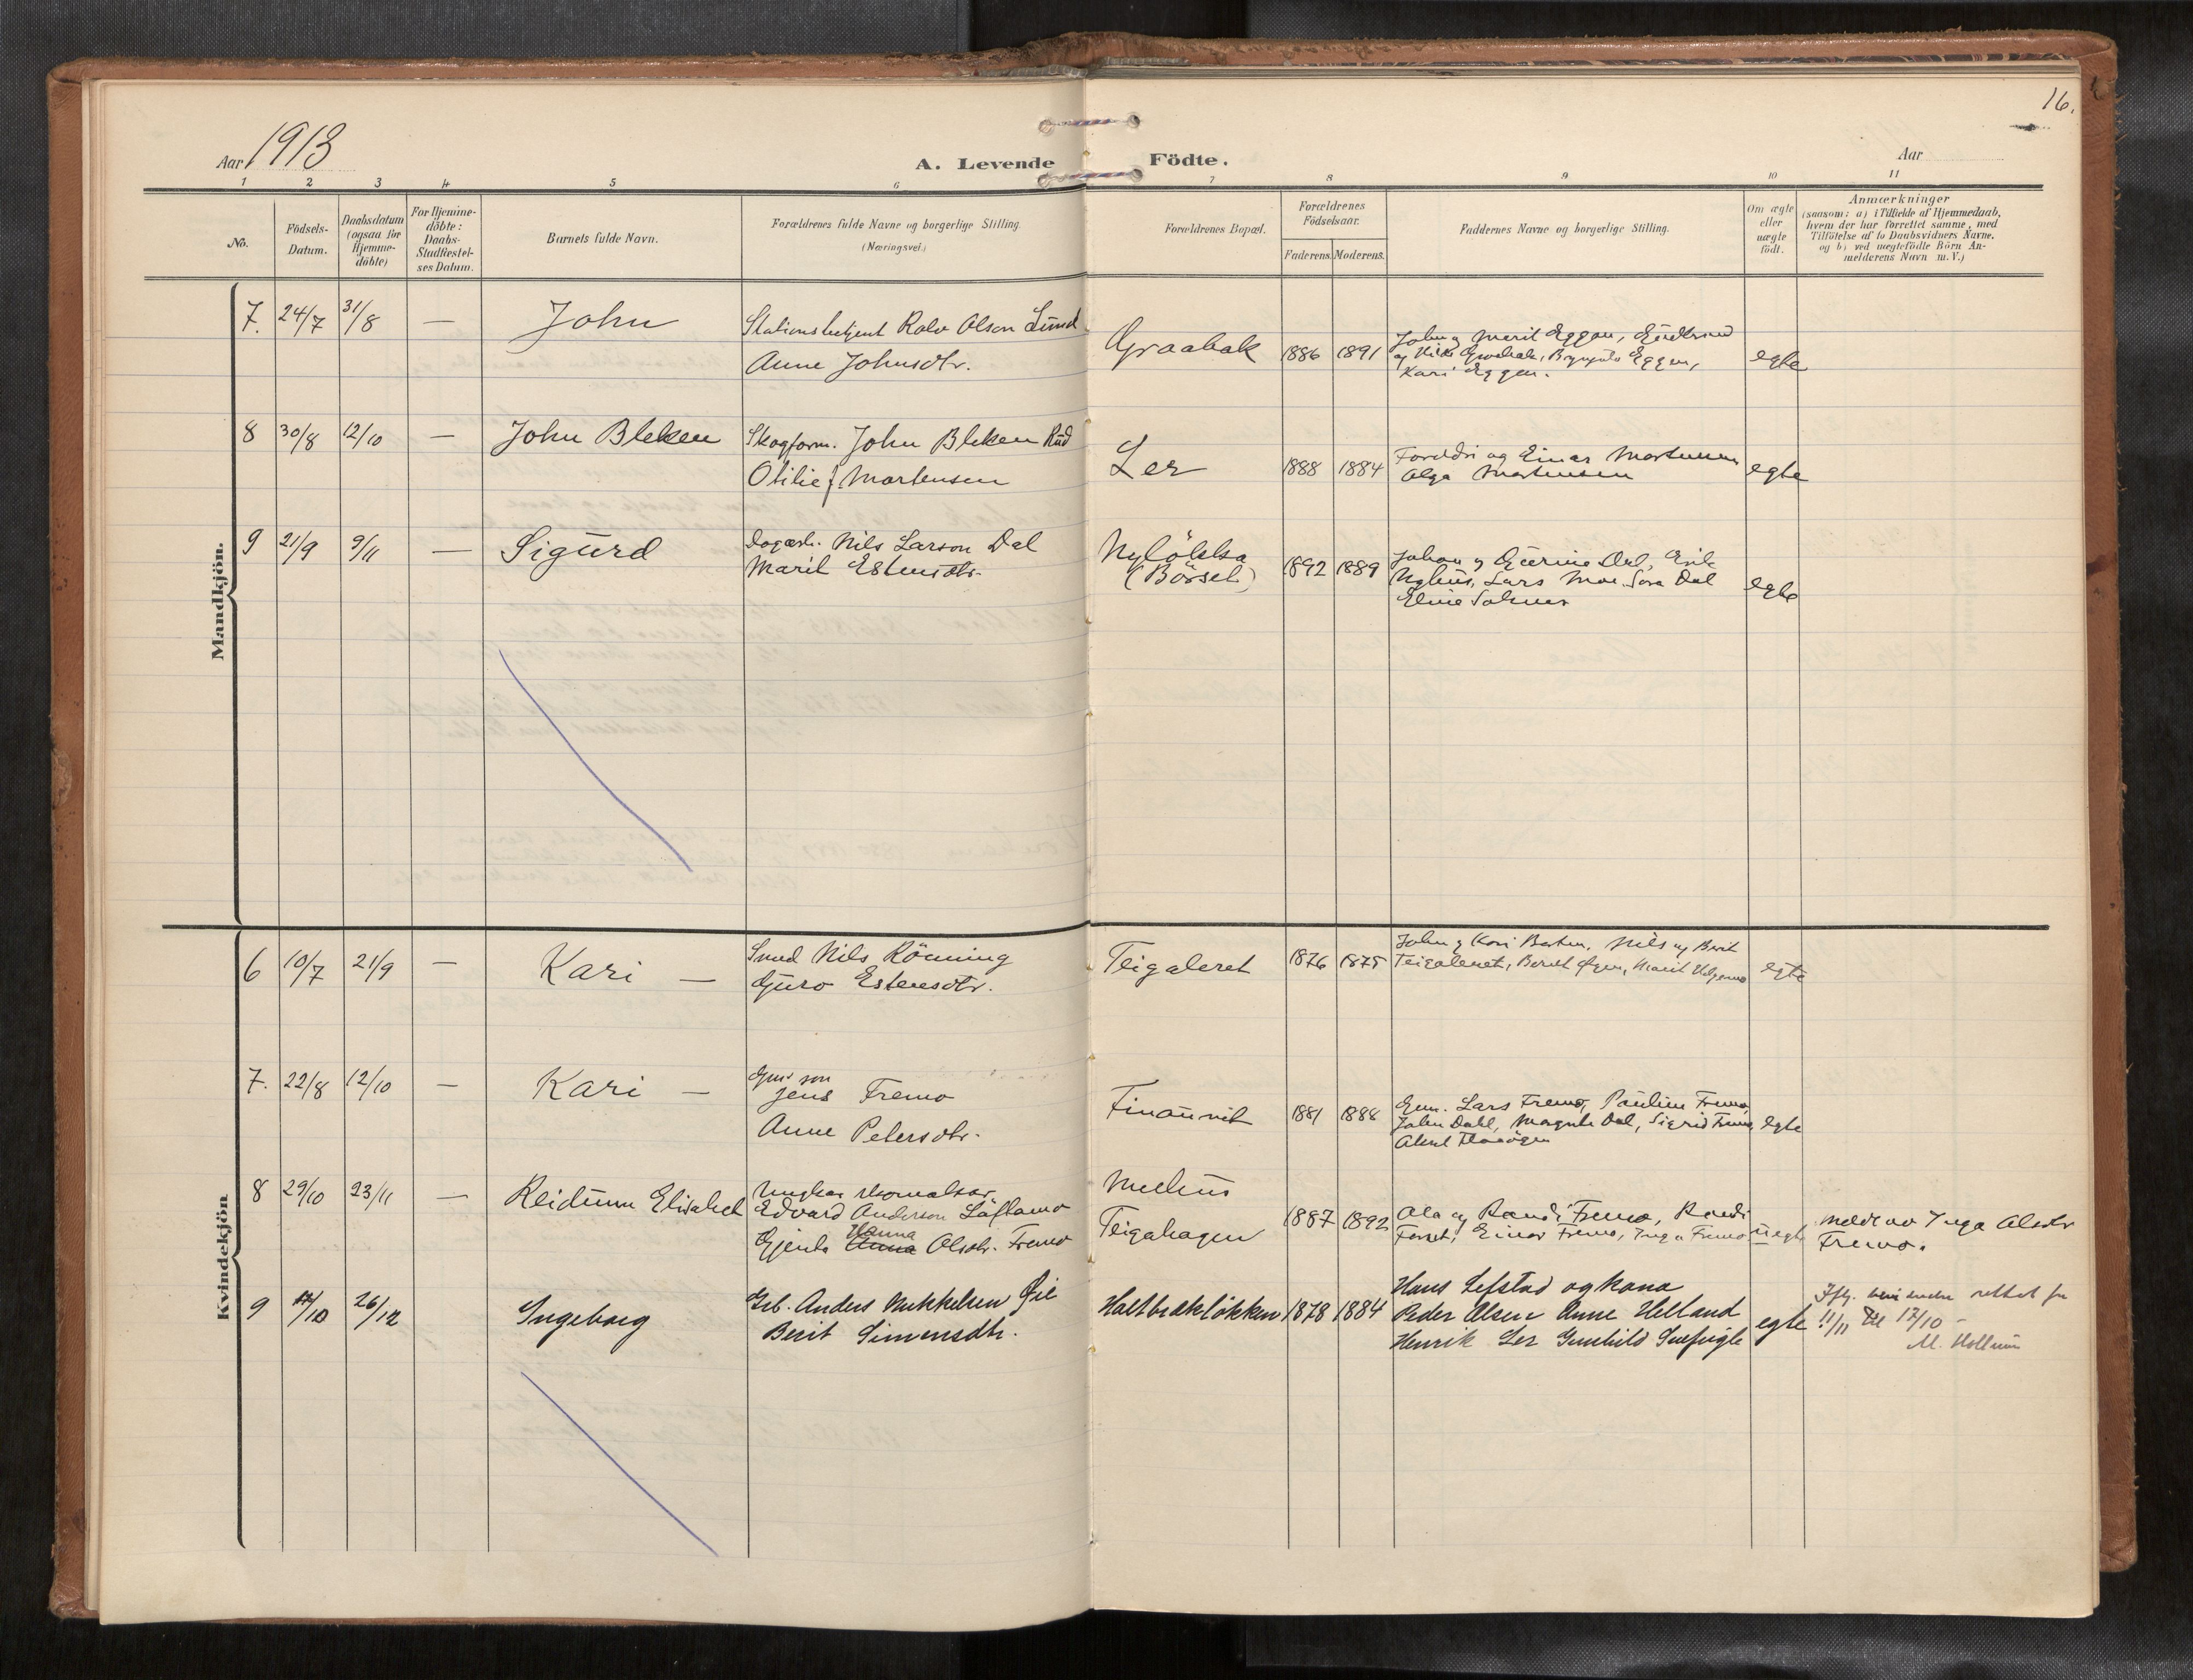 16.
Aar 1913
A. Levende Födte.
Aar
1 2 3 4 5 6 7 8 9 10 11
No.
Födsels-
Datum.
Daabsdatum
(ogsaa for
Hjemme-
döbte)
For Hjemme-
döbte:
Daabs-
Stadfæstel-
ses Datum.
Barnets fulde Navn.
Forældrenes fulde Navne og borgerlige Stilling.
(Næringsvei.)
Forældrenes Bopæl.
Forældrenes
Födselsaar.
Faderens. Moderens.
Faddernes Navne og borgerlige Stilling.
Om ægte
eller
uægte
födt.
Anmærkninger
(saasom: a) i Tilfælde af Hjemmedaab,
hvem der har forrettet samme, med
Tilföielse af to Daabsvidners Navne,
og b) ved uægtefödte Börn An-
melderens Navn m. V.)
Mandkjön.
7. 24/7 31/8 — John
Stationsbetjent Rolv Olson Lund
Anne Johnsdtr.
Graabak 1886 1891
John og Marit Eggen,
Eggen,
Kari Eggen.
egte
8 30/8 12/10 — John Bleken
Skogform. John Bleken Rud
Otilie f. Mortensen
Ler 1888 1884
Foreldri og Einar Mortensen
Olga Mortensen
egte
9 21/9 9/11 — Sigurd
Dagarb. Nils Larson Dal
Marit Estensdtr.
Nylökka
(Börsel.)
1892 1889
Johan og Gurine Dal, Erik
Nyhus, Lars Moe, Dal
Eline
egte
Kvindekjön
6 10/7 21/9 — Kari —
Smed Nils Rönning
Guro Estensdtr.
Teigaleret 1876 1875
John og Kari Nils og Berit
Teigaleret, Marit
egte
7. 22/8 12/10 — Kari —
Jens Fremo
Anne Petersdtr.
1881 1888
Gm. Lars Fremo, Pauline Fremo,
John Dahl, Dal, Sigrid Fremo
egte
8 29/10 23/11 — Reidunn Elisabet
Ungkar
Edvard Anderson Löflamo
Hanna
Gjenta Anna Olsdtr. Fremo
Melhus
Teigahagen
1887 1892
Ola og Randi Fremo, Randi
Forset, Einar Fremo, Inga Fremo
uegte
Meldt av Inga Olsdtr
Fremo.
9 17/10 26/12 Ingeborg
Grb. Anders Mikkelsen Öie
Berit Simensdtr.
Haltbrækløkken 1878 1884
Hans Lefstad og kona
Peder Olsen Anne Helland
Henrik Ler Gunhild
egte
rettet fra
11/11 til 17/10 –